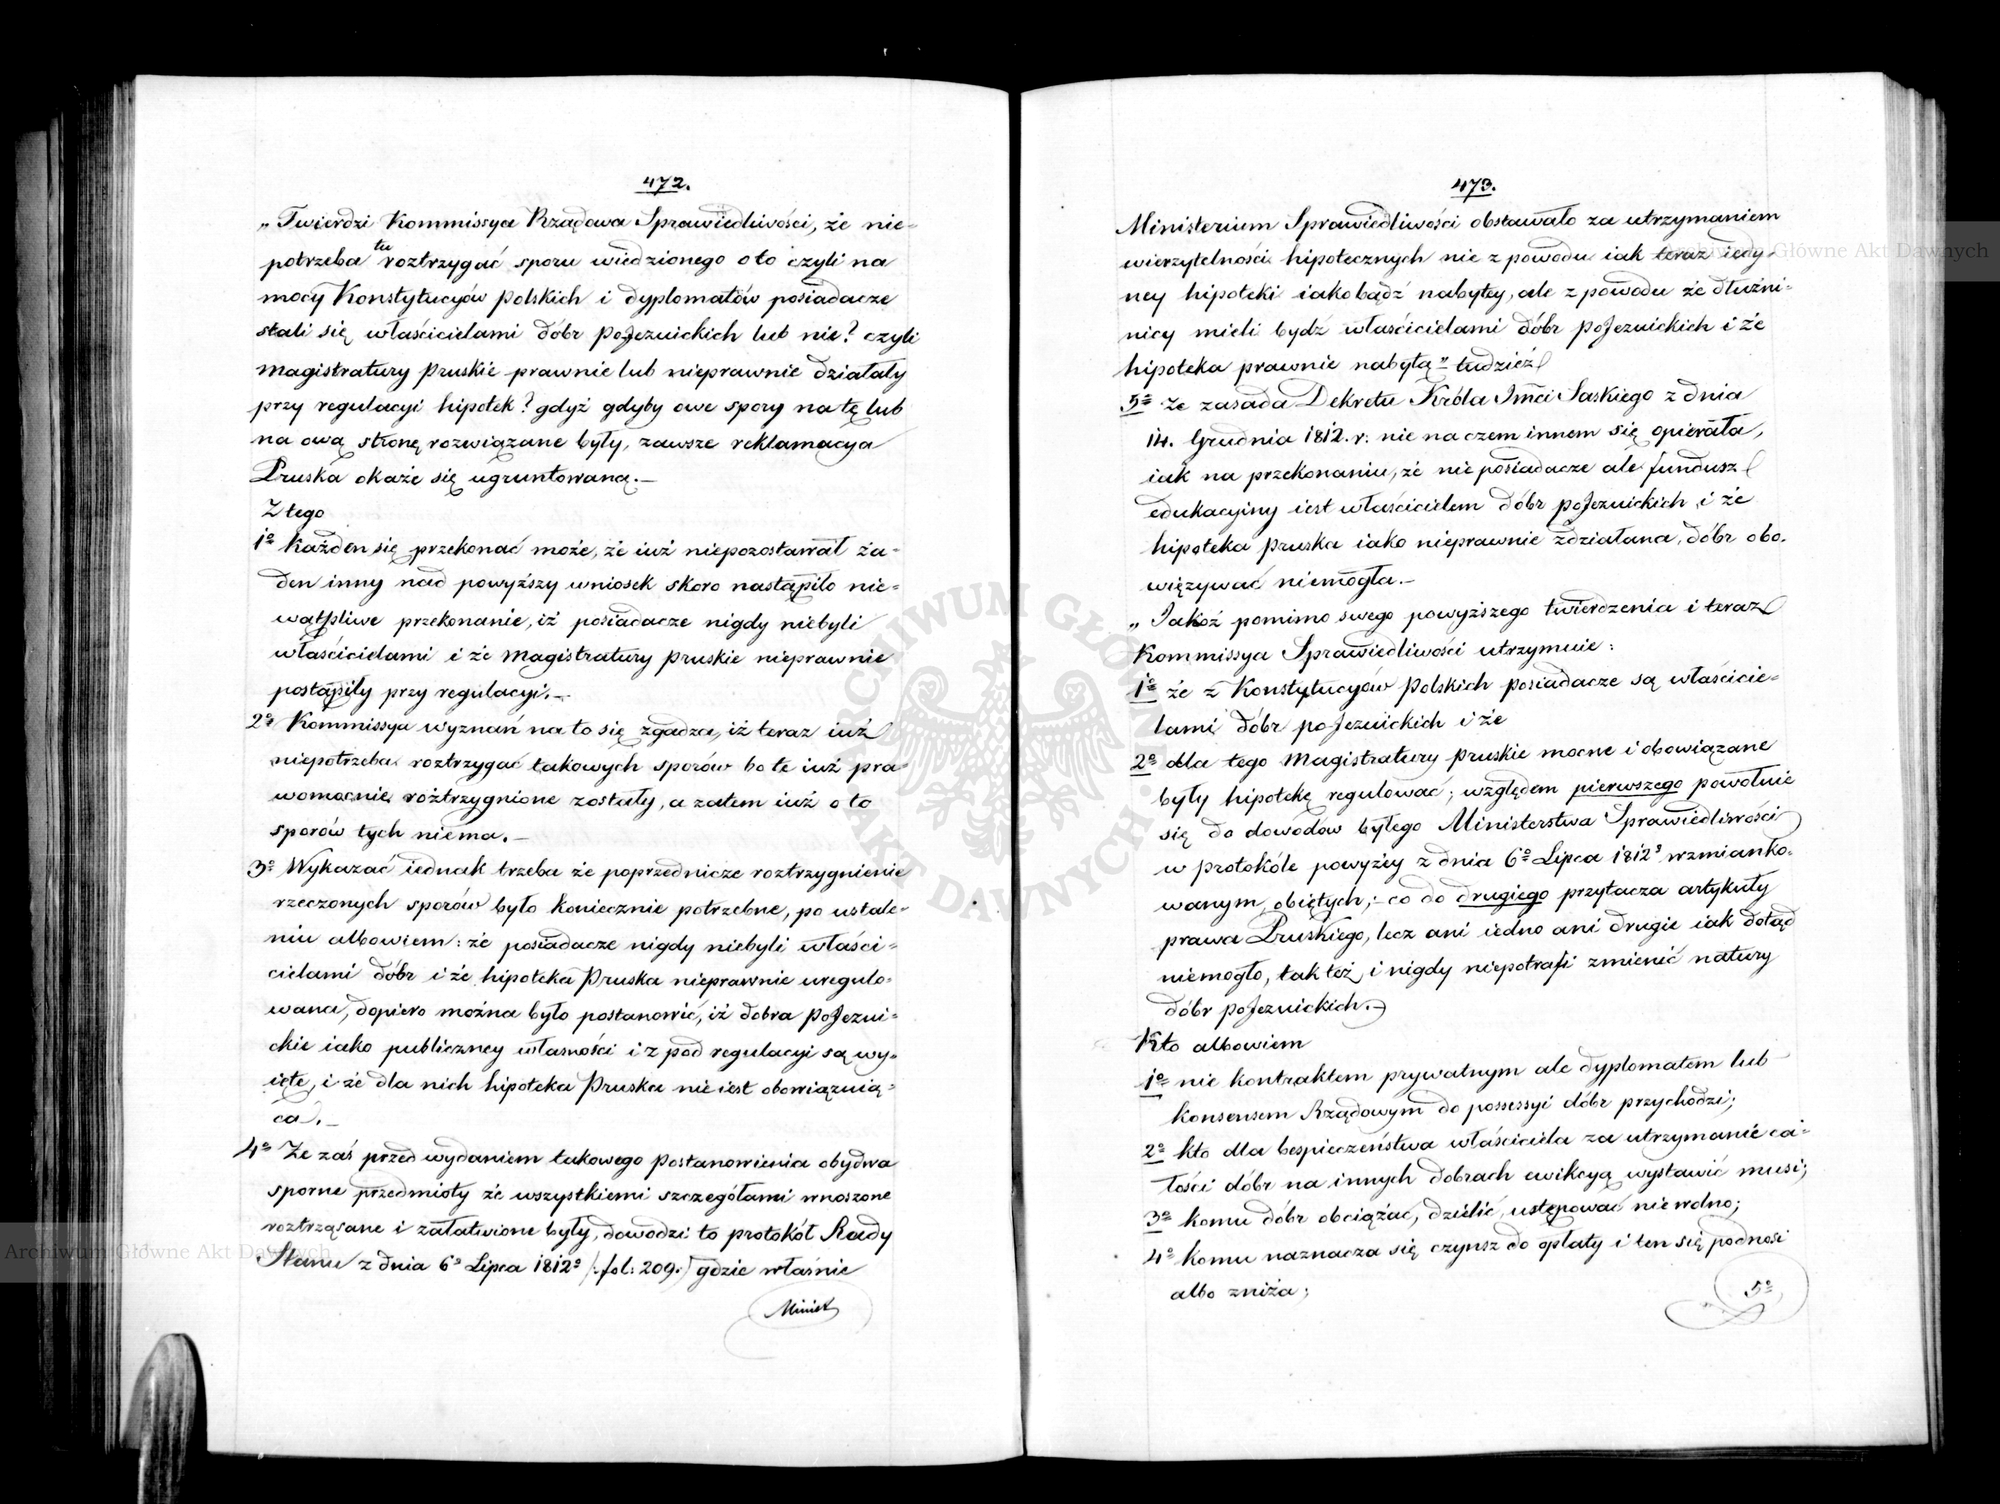 472.
„Twierdzi Kommissya Rządowa Sprawiedliwości, że nie-
potrzeba tu roztrzygać sporu wiedzionego o to czyli na
mocy Konstytucyów Polskich i dyplomatów posiadacze
stali się właścicielami dóbr poJezuickich lub nie? czyli
Magistratury Pruskie prawnie lub nieprawnie działały
przy regulacyi hipotek? gdyż gdyby owe spory na tę lub
na ową stronę rozwiązane były, zawsze reklamacya
Pruska okaże się ugruntowaną.—
Z tego
1o Każden się przekonać może, że iuż niepozostawał ża-
den inny nad powyższy wniosek skoro nastąpiło nie-
wątpliwe przekonanie, iż posiadacze nigdy niebyli
właścicielami i że Magistratury Pruskie nieprawnie
postąpiły przy regulacyi.—
2o Kommissya wyznań na to się zgadza, iż teraz iuż
niepotrzeba roztrzygać takowych sporów bo te iuż pra
womocnie roztrzygnione zostały, a zatem iuż o to
sporów tych niema.—
3o Wykazać iednak trzeba że poprzednicze roztrzygnienie
rzeczonych sporów było koniecznie potrzebne, po ustale-
niu albowiem: że posiadacze nigdy niebyli właści-
cielami dóbr i że hipoteka Pruska nieprawnie uregulo-
wana, dopiero można było postanowić, iż dobra poJezui-
ckie iako publiczney własności i z pod regulacyi są wy-
ięte, i że dla nich hipoteka Pruska nie iest obowiązuią-
ca.—
4o Że zaś przed wydaniem takowego postanowienia obydwa
sporne przedmioty ze wszystkiemi szczegółami wnoszone
roztrząsane i załatwione były, dowodzi to protokół Rady
Stanu z dnia 6o Lipca 1812o /:fol: 209:/ gdzie właśnie
Minist
473.
Ministerium Sprawiedliwości obstawało za utrzymaniem
wierzytelności hipotecznych nie z powodu iak teraz iedy-
ney hipoteki iakobądź nabytey, ale z powodu że dłużni-
nicy mieli bydź właścicielami dóbr poJezuickich i że
hipoteka prawnie nabytą" tudzież
5o Że zasada Dekretu Króla Jmci Saskiego z dnia
14. Grudnia 1812. r: nie na czem innem się opierała,
iak na przekonaniu, że nie posiadacze ale fundusz
edukacyiny iest właścicielem dóbr poJezuickich, i że
hipoteka Pruska iako nieprawnie zdziałana, dóbr obo-
więzywać niemogła.—
„Jakoż pomimo swego powyższego twierdzenia i teraz
Kommissya Sprawiedliwości utrzymuie:
1o że z Konstytucyów Polskich posiadacze są właścicie-
lami dóbr poJezuickich i że
2o dla tego Magistratury Pruskie mocne i obowiązane
były hipotekę regulować; względem pierwszego powołuie
się do dowodów byłego Ministerstwa Sprawiedliwości
w protokóle powyżey z dnia 6o Lipca 1812o wzmianko-
wanym, obiętych; co do drugiego przytacza artykuły
prawa Pruskiego, lecz ani iedno ani drugie iak dotąd
niemogło, tak też i nigdy niepotrafi zmienić natury
dóbr poJezuickich.—
Kto albowiem
1o nie kontraktem prywatnym ale dyplomatem lub
konsensem Rządowym do possessyi dóbr przychodzi;
2o kto dla bespieczeństwa właściciela za utrzymanie ca-
łości dóbr na innych dobrach ewikcyą wystawić musi;
3o komu dóbr obciążać, dzielić, ustępować nie wolno;
4o komu naznacza się czynsz do opłaty i ten się podnosi
albo zniża;
5o
Archiwum Główne Akt Dawnych
Archiwum Główne Akt Dawnych
ARCHIWUM GŁÓWNE AKT DAWNYCH